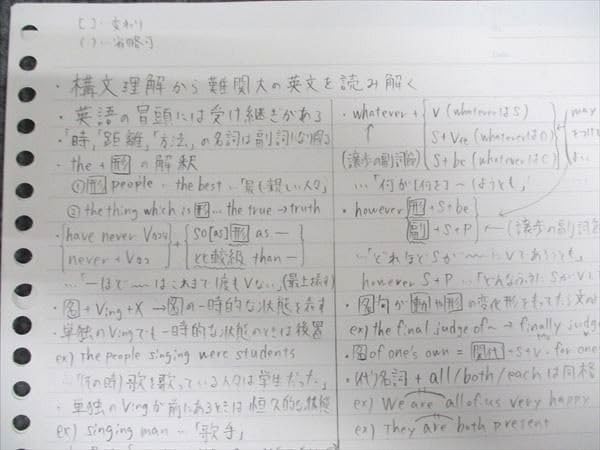 [ ]…変わり
( )…省略可
・構文理解から難関大の英文を読み解く
・英語の冒頭には受け継ぎがある
・「時」「距離」「方法」の名詞は副詞になり得る
・the + 形 の解釈
① 形 people … the best …
② the thing which is 形 … the true → truth
have never
never +
so[as] 形 as ―
比較級 than ―
… 「―ほど〜はこれまで1度もVない」(最上級)
・名 + Ving + X → 名の一時的な状態を表す
・単独のVingでも一時的な状態のときは後置
ex) The people singing were students
「(その時)歌を歌っている人々は学生だった」
・単独のVingが前にあるときは恒久的な状態
ex) singing man … 「歌手」
・whatever +
V (whateverはS)
S+Vt (whateverはO)
S + be (whateverはC)
may
(譲歩の副詞節)
… 「何が[何を]〜しようとも」
・however
形 + S + be
副 + S + P
(譲歩の副詞節
… 「どれほどSが〜
however S + P … 「どんなふうにSが
・名句が動や形の変化形をもってたら文
ex) the final judge of〜 → finally judge
・名 of one's own = 関代 + S + V for one
・(代)名詞 + all/both/each は同格
ex) We are all of us very happy
ex) They are both present